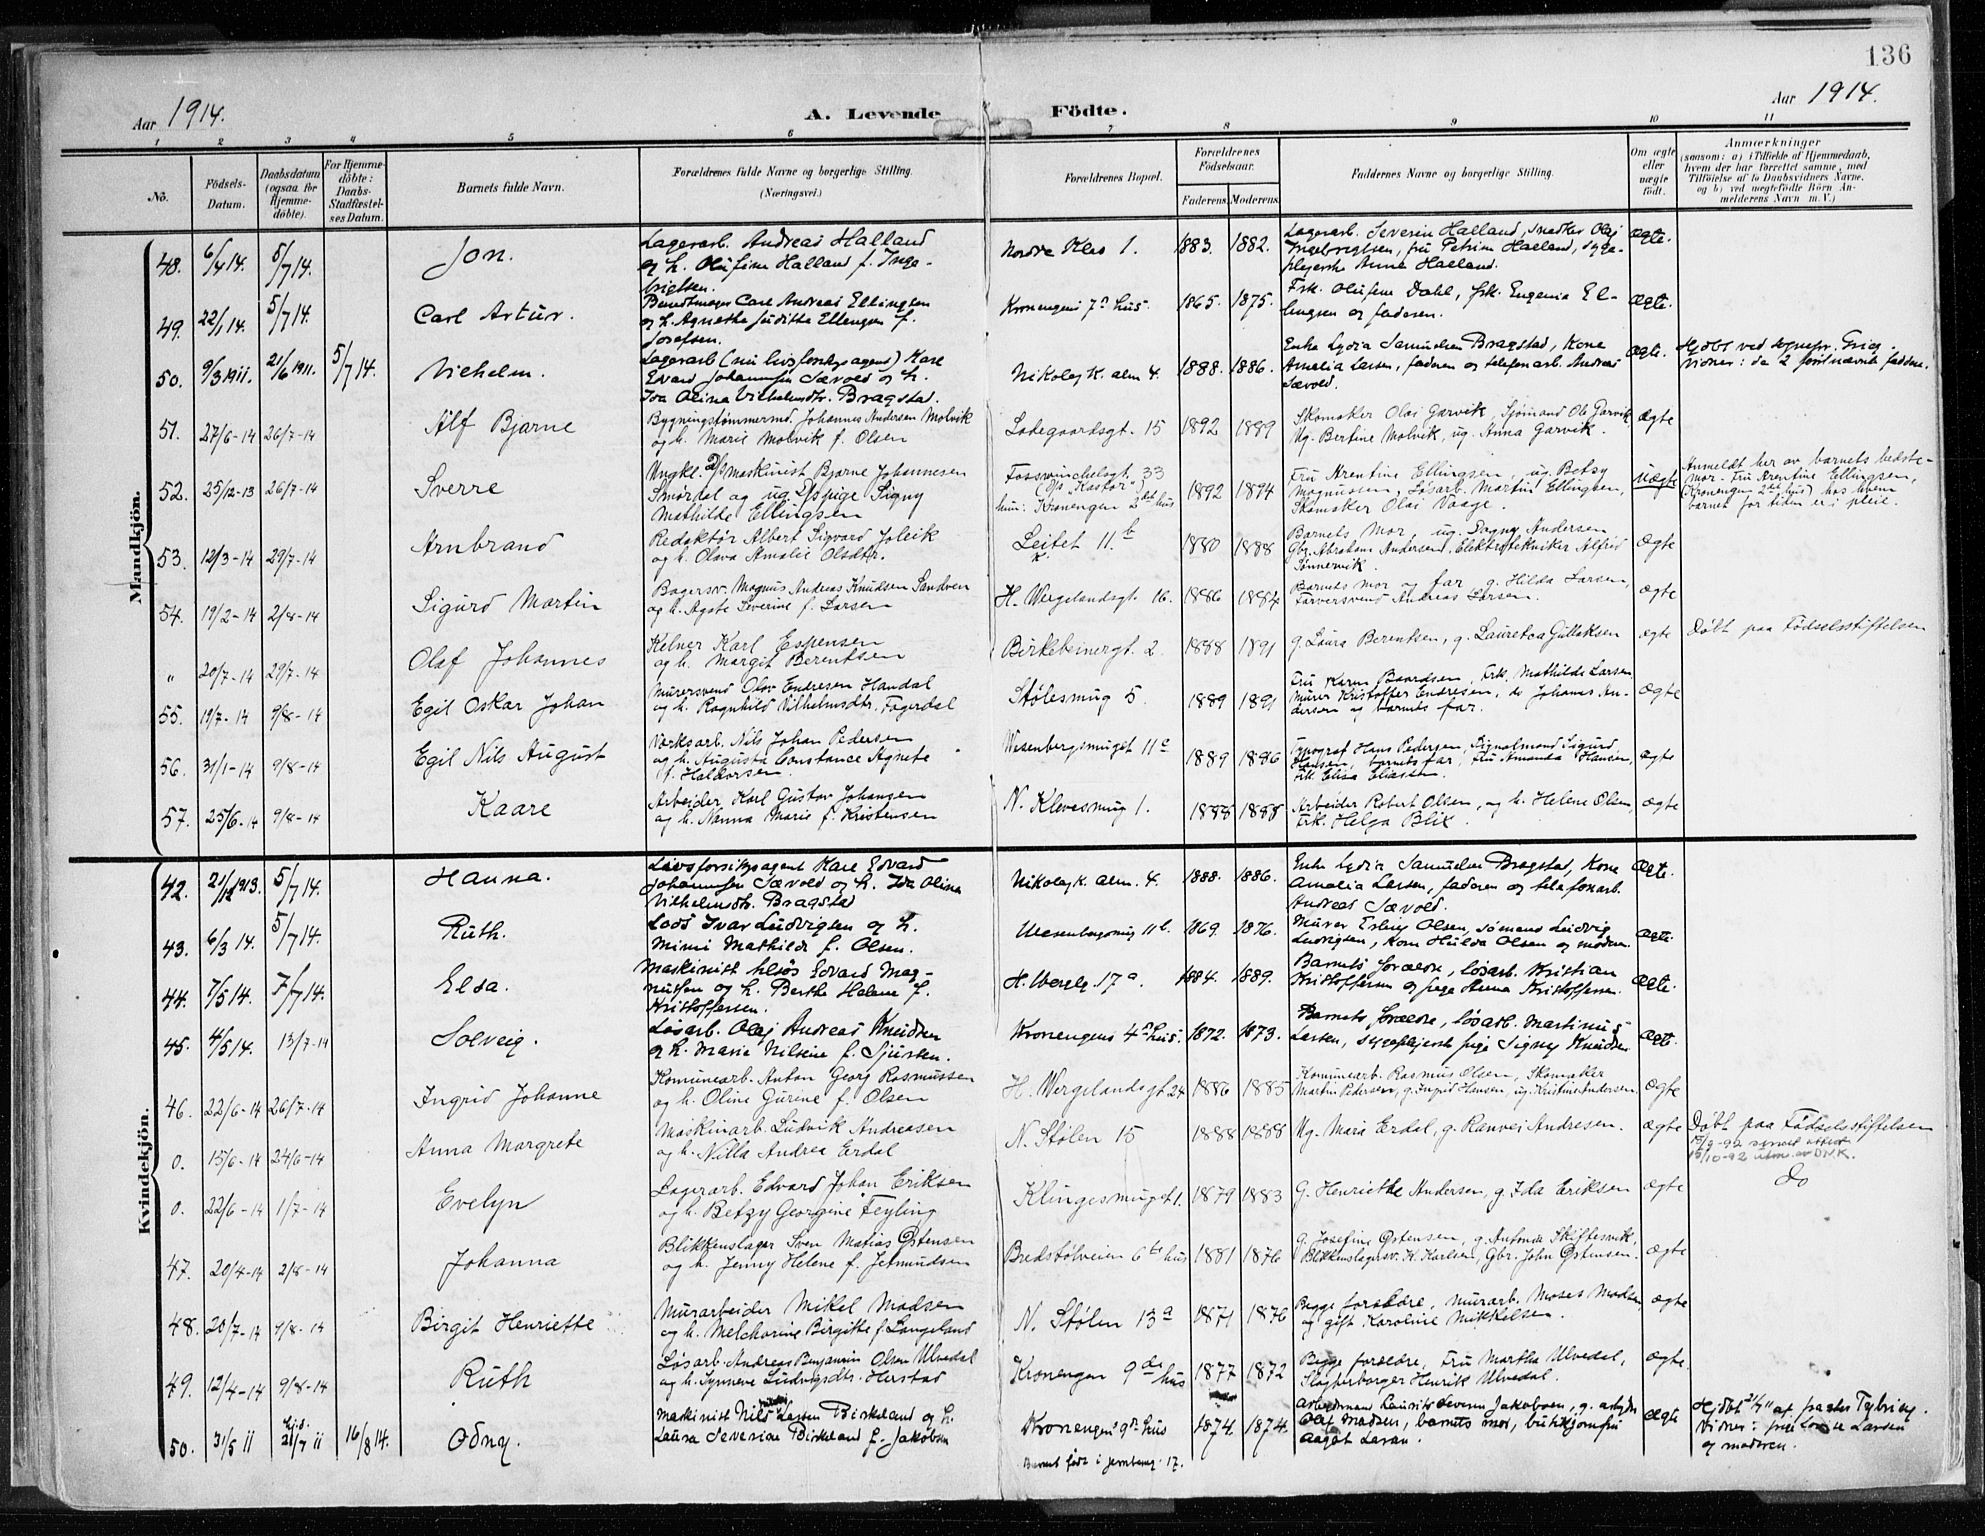 136
Aar 1914.
A. Levende Födte.
Aar 1914.
1 2 3 4 5 6 7 8 9 10 11
No.
Födsels-Datum.
Daabsdatum (ogsaa for Hjemmedöbte).
For Hjemmedöbte: Daabs-Stadfæstelses Datum.
Barnets fulde Navn.
Forældrenes fulde Navne og borgerlige Stilling.
(Næringsvei.)
Forældrenes Bopæl.
Forældrenes Födselsaar.
Faderens. Moderens.
Faddernes Navne og borgerlige Stilling.
Om ægte eller uægte födt.
Anmærkninger
(saasom: a) i Tilfælde af Hjemmedaab, hvem der har forrettet samme, med Tilföielse af to Daabsvidners Navne, og b) ved uægtefödte Börn Anmelderens Navn m. V.)
Mandkjön.
48. 6/4 14. 5/7 14. Jon.
Lagerarb. Andreas Halland
og h. Olufine Halland f. Inge-
brigtsen.
Nordre Kleo 1. 1883. 1882.
Lagerarb. Severin Halland, Snedker Olaj
Ingebrigtsen, fru Petrine Haaland, syge-
plejerske Anna Haaland.
ægte.
49. 22/1 14. 5/7 14. Carl Artur.
Carl Andreas Ellingsen
og h. Agnethe Juditha Ellingsen f.
Josefsen.
Kronengens 7de hus. 1865. 1875.
Frk. Olufine Dahl, frk. Eugenia El-
lingsen og faderen.
ægte.
50. 9/3 1911. 21/6 1911. 5/7 14. Vilhelm.
Lagerarb (nu livsforskrsagent) Kare
Edvard Johannesen Sævold og h.
Ida Olina Vilhelmsdtr. Bragstad.
Nikolajk. alm 4. 1888. 1886.
Enke Lydia Samuelsen Bragstad, Kone
Amalia Larsen, faderen og telefonarb. Andreas
Sævold.
ægte.
Hjdøbt ved sognepr. Grieg.
Vidner: de 2 først nævnte faddere.
51. 27/6-14 26/7-14 Alf Bjarne
Bygningstømmermd. Johannes Andersen Molvik
og h. Marie Molvik f. Olsen
Ladegaardsgt. 15 1892 1889
Skomaker Olai Garvik, Sjømand Ole Garvik,
Ug. Bertine Molvik, ug. Anna Garvik.
ægte
52. 25/12-13 26/7-14 Sverre
Ungkl. maskinist Bjarne Johannesen
Smørdal og ug. pige Signy
Mathilde Ellingsen
Fosswinckelsgt. 33
(D/S "Kastor")
hun: Kronengen 2det hus
1892 1894
Fru Arentine Ellingsen, ug. Betsy
Magnussen, Løsarb. Martin Ellingsen,
Skomaker Olai Vaage.
uægte
Anmeldt her av barnets bedste-
mor - Fru Arentine Ellingsen,
(Kronengen 2det hus) hos hvem
barnet for tiden er i pleie.
53. 12/3-14 29/7-14 Arnbrand
Redaktør Albert Sigvard Joleik
og h. Olava Amalie Olsdtr.
Leitet 11.b 1880 1888
Barnets Mor, ug. Dagny Andersen
Gbr. Abraham Andersen, Elektrotekniker Alfred
Sønnervik.
ægte
54. 19/2-14 2/8-14 Sigurd Martin
Bagersv. Magnus Andreas Knudsen Sandven
og h. Agate Severine f. Larsen
H. Wergelandsgt. 16. 1886 1884
Barnets mor og far, g. Hilda Larsen,
Farversvend Andreas Larsen.
ægte
" 20/7-14 29/7-14 Olaf Johannes
Kelner Karl Espensen
og h. Margit Berentsen
Birkebeinergt. 2. 1888 1891
g. Laura Berentsen, g. Lauretca Gullaksen
ægte
Døbt paa Fødselsstiftelsen
55. 19/7-14 9/8-14 Egil Oskar Johan
Murersvend Olav Endresen Handal
og h. Ragnhild Vilhelmsdtr. Fagerdal
Stølesmug 5. 1889 1891
Fru Karen Baardsen, Frk. Mathilde Larsen
Murer Kristoffer Endresen, do Johannes An-
dersen og barnets far.
ægte
56. 31/1-14 9/8-14 Egil Nils August
Verksarb. Nils Johan Pedersen
og h. Augusta Constance Agnete
f. Haldorsen.
Wesenbergsmuget 11c 1889 1886
Typograf Hans Pedersen, Signalmand Sigurd
Hansen, barnets far, Fru Amanda Hansen,
Frk. Elisa Eliassen.
ægte
57. 25/6-14 9/8-14 Kaare
Arbeider Karl Gustav Johansen
og h. Nanna Marie f. Kristensen
N. Klevesmug 1. 1888 1888
Arbeider Robert Olsen, og h. Helene Olsen,
Frk. Helga Blix.
ægte
Kvindekjön.
42. 21/12 1913. 5/7 14. Hanna.
Livsforsikrsagent Kare Edvard
Johannesen Sævold og h. Ida Olina
Vilhelmsdtr. Bragstad
Nikolajk. alm. 4. 1888. 1886.
Enke Lydia Samuelsen Bragstad, Kone
Amalia Larsen, faderen og telefonarb.
Andreas Sævold.
ægte.
43. 6/3 14. 5/7 14. Ruth.
Lods Ivar Ludvigsen og h.
Mimi Mathilde f. Olsen.
Wesenbergsmug 11b. 1869. 1876.
Murer Erling Olsen, sømand Ludvig
Ludvigsen, Kone Hulda Olsen og moderen.
ægte.
44. 7/5 14. 7/7 14. Elsa.
Maskinist Edvard Mag-
nussen og h. Berthe Helene f.
Kristoffersen.
H. Wergelg. 17a. 1884. 1889.
Barnets forældre, løsarb. Kristian
Kristoffersen og pige Anna Kristoffersen.
ægte.
45. 4/5 14. 13/7-14 Solveig.
Løsarb. Olaj Andreas Knudsen
og h. Maria Nilsine f. Sjursen.
Kronengens 4de hus. 1872. 1873.
Barnets forældre, løsarb. Martinus
Larsen, sygeplejersk. pige Signy Knudsen
ægte.
46. 22/6-14 26/7-14 Ingrid Johanne
Komunearb. Anton Georg Rasmussen
og h. Oline Gurine f. Olsen
H. Wergelandsgt 24 1886 1885
Komunearb. Rasmus Olsen, Skomaker
Martin Pedersen, g. Ingrid Hansen, ug. Kristine Andersen
ægte
0. 15/6-14 24/6-14 Anna Margrete
Maskinarb. Ludvik Andreasen
og h. Nilla Andrea Erdal
N. Stølen 15 1888 1888
Ug. Maria Erdal, g. Ranvei Andresen.
ægte
Døbt paa Fødselsstiftelsen
15/10-92 utm. av DNK.
0. 22/6-14 1/7-14 Evelyn
Lagerarb. Edvard Johan Eriksen
og h. Betzy Georgine Feyling
Klingesmuget 1. 1879 1883
G. Henriette Andersen, g. Ida Eriksen
ægte
do
47. 20/4-14 2/8-14 Johanna
Blikkenslager Sven Matias Østensen
og h. Jenny Helene f. Jetmundsen
Bredstølveien 6te hus 1881 1876
g. Josefine Østensen, g. Antonie Skiftesvik,
Blikkenslagersv. K. Karlsen, Gbr. John Østensen.
ægte
48. 20/7-14 9/8-14 Birgit Henriette
Murarbeider Mikel Madsen
og h. Melchorine Birgitte f. Langeland
N. Stølen 13a 1871 1876
Begge forældre, murarb. Moses Madsen,
og gift Karoline Mikkelsen.
ægte
49. 12/4-14 9/8-14 Ruth
Løsarb. Andreas Benjamin Olsen Ulvedal
og h. Synneve Ludvigsdtr. Herstad
Kronengen 9de hus 1877 1872
Begge forældre, Fru Martha Ulvedal,
Slagterborger Henrik Ulvedal.
ægte
50. 31/5 11 hjd. 21/7 11 16/8 14. Odny.
Maskinist Nils Larsen Birkeland og h.
Laura Severine Birkeland f. Jakobsen
Kronengens 9de hus
Barnet født i Jernbaneg. 17.
1874. 1874.
Arbeidsmand Laurits Severin Jakobsen, g. arbejder
Olaf Madsen, barnets mor, butikjomfru
Aagot Larsen.
ægte
Hjdøbt 21/7 11 af pastor Tybring.
Vidner: pige Larsen
og moderen.